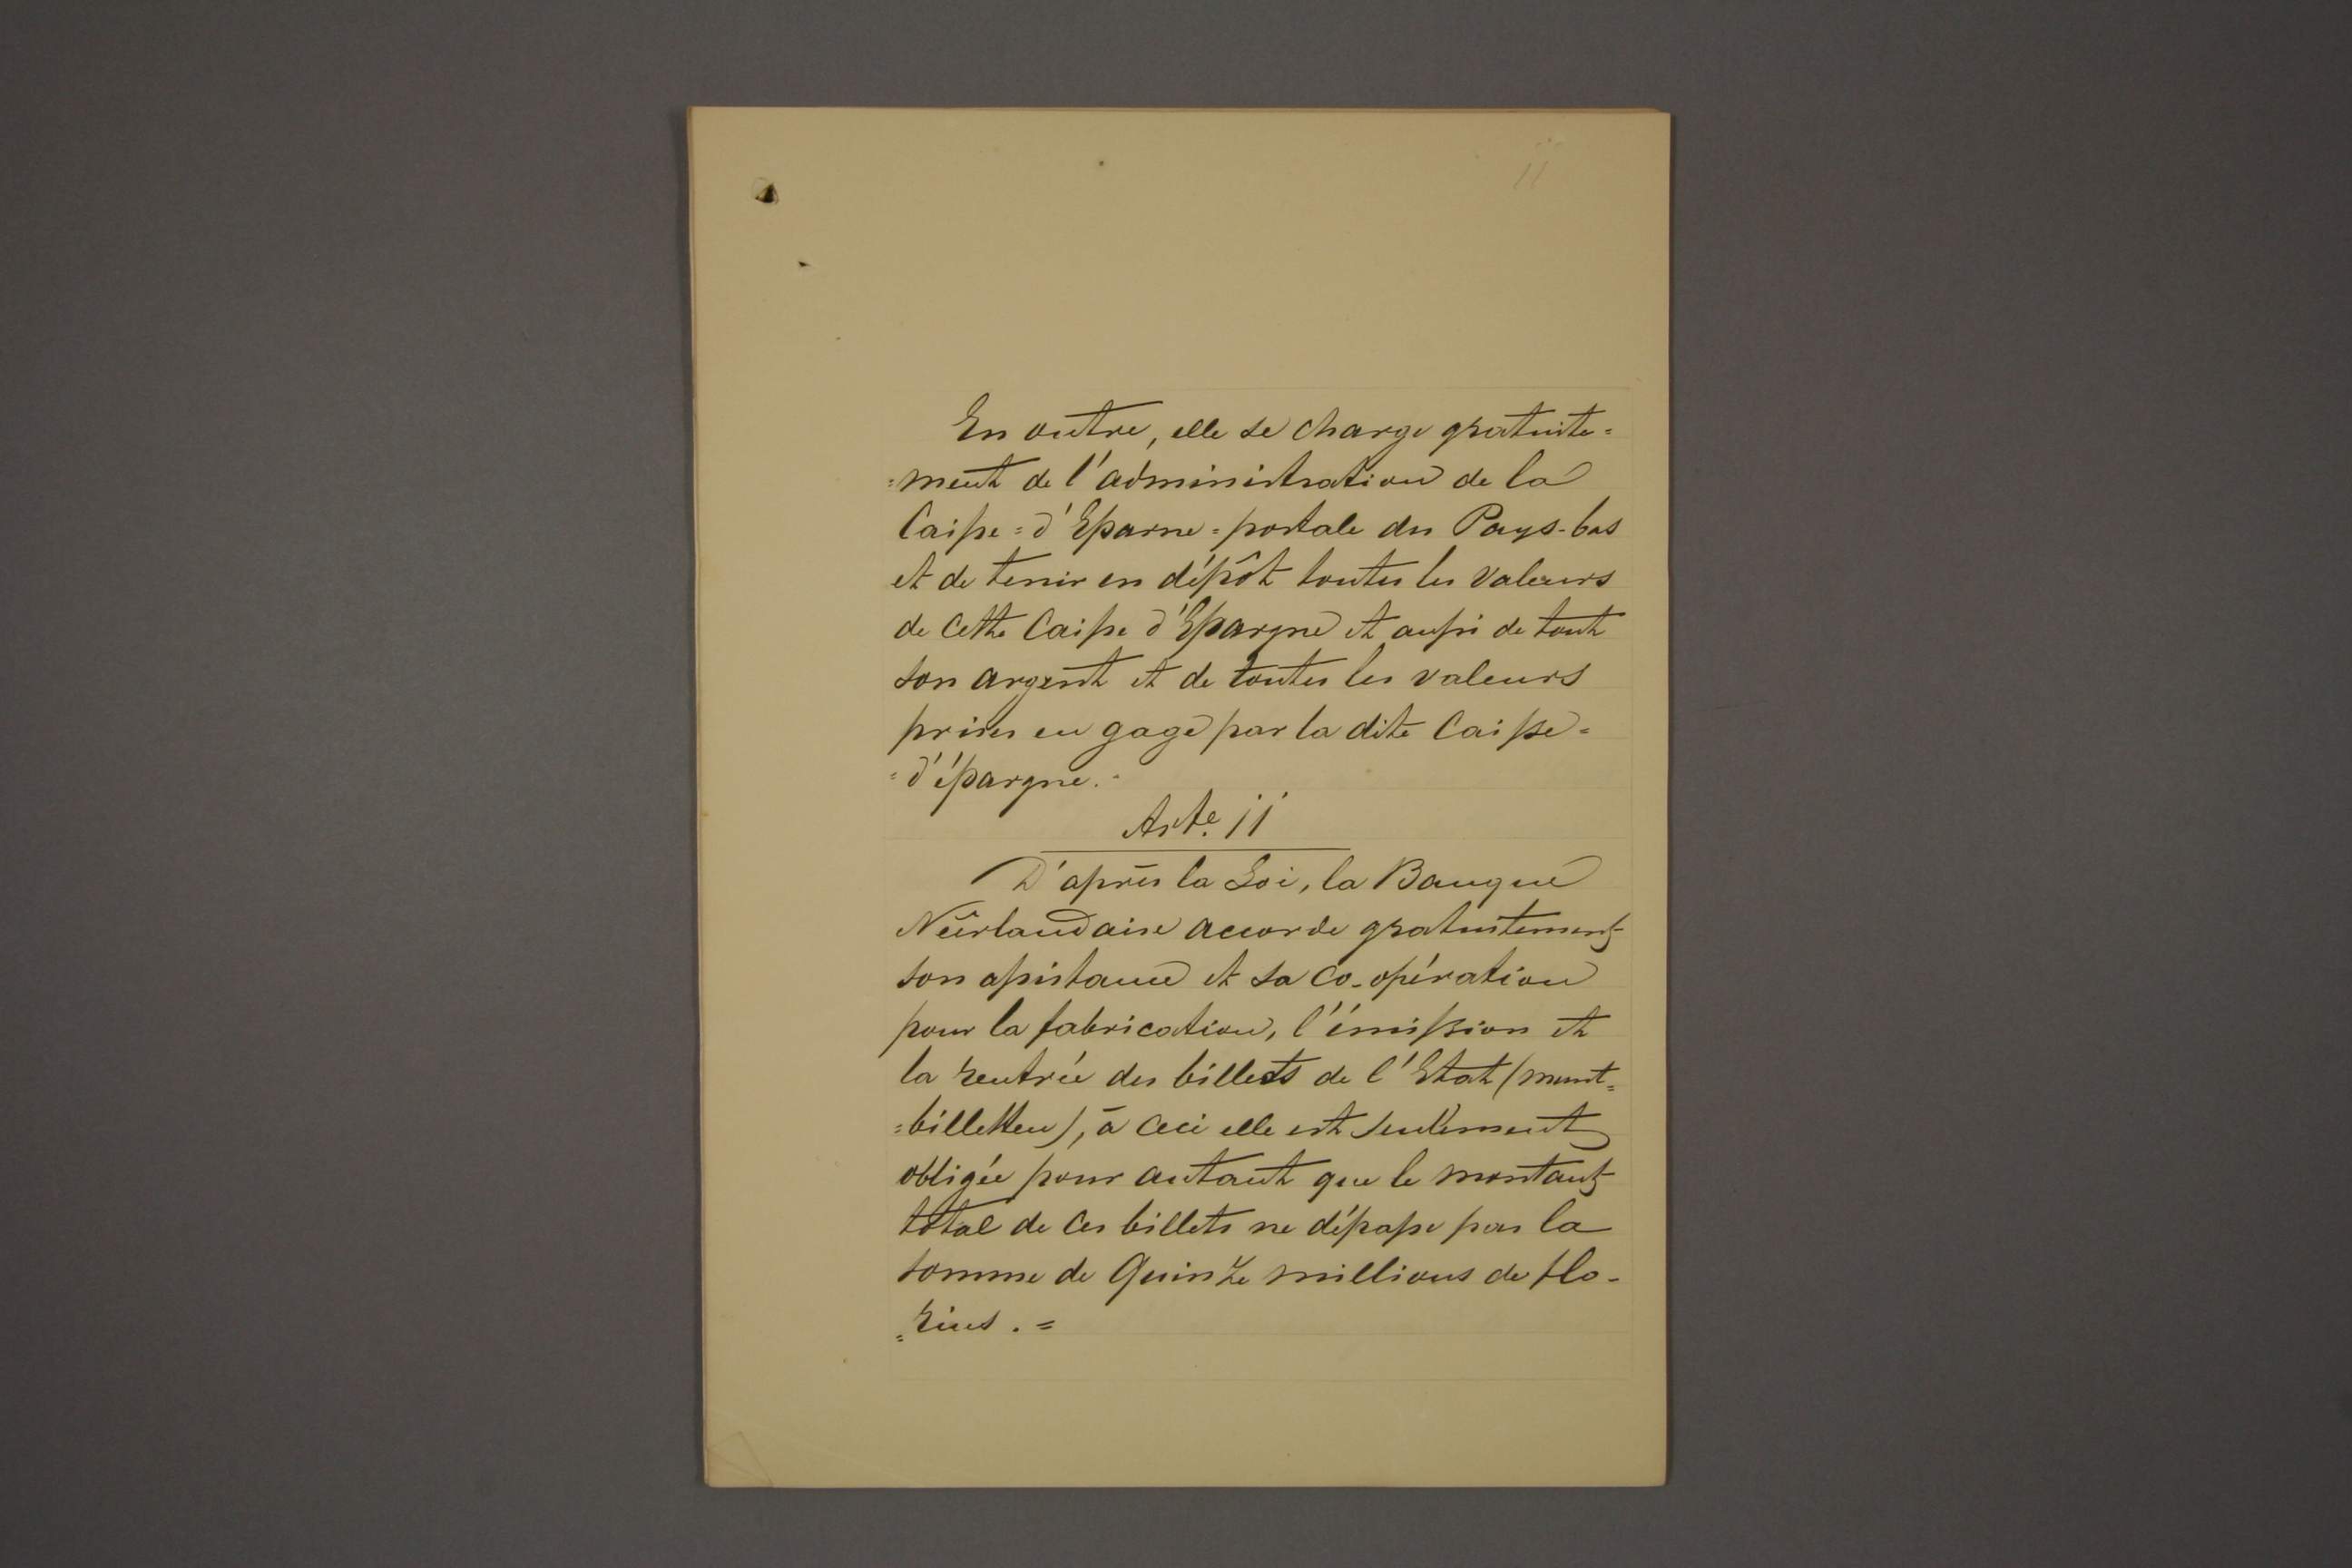 11
En outre, elle se charge gratuite=
=ment de l'administration de la
Caisse=d'Eparne=postale du Pays-bas
et de tenir en dépôt toutes les Valeurs
de cette Caisse d'Epargne et aussi de tout
son argent et de toutes les valeurs
prises en gage par la dite Caisse=
=d'épargne.-
Arte. 11
D'après la Loi, la Banque
Néêrlandaise accorde gratuitement
son assistance et sa co-opération
pour la fabrication, l'émission et
la rentrée des billets de l'Etat (munt=
=billetten), à ceci elle est seulement
obligée pour autant que le montant
total de ces billets ne dépasse pas la
somme de Quinze millions de flo-
=rins.=